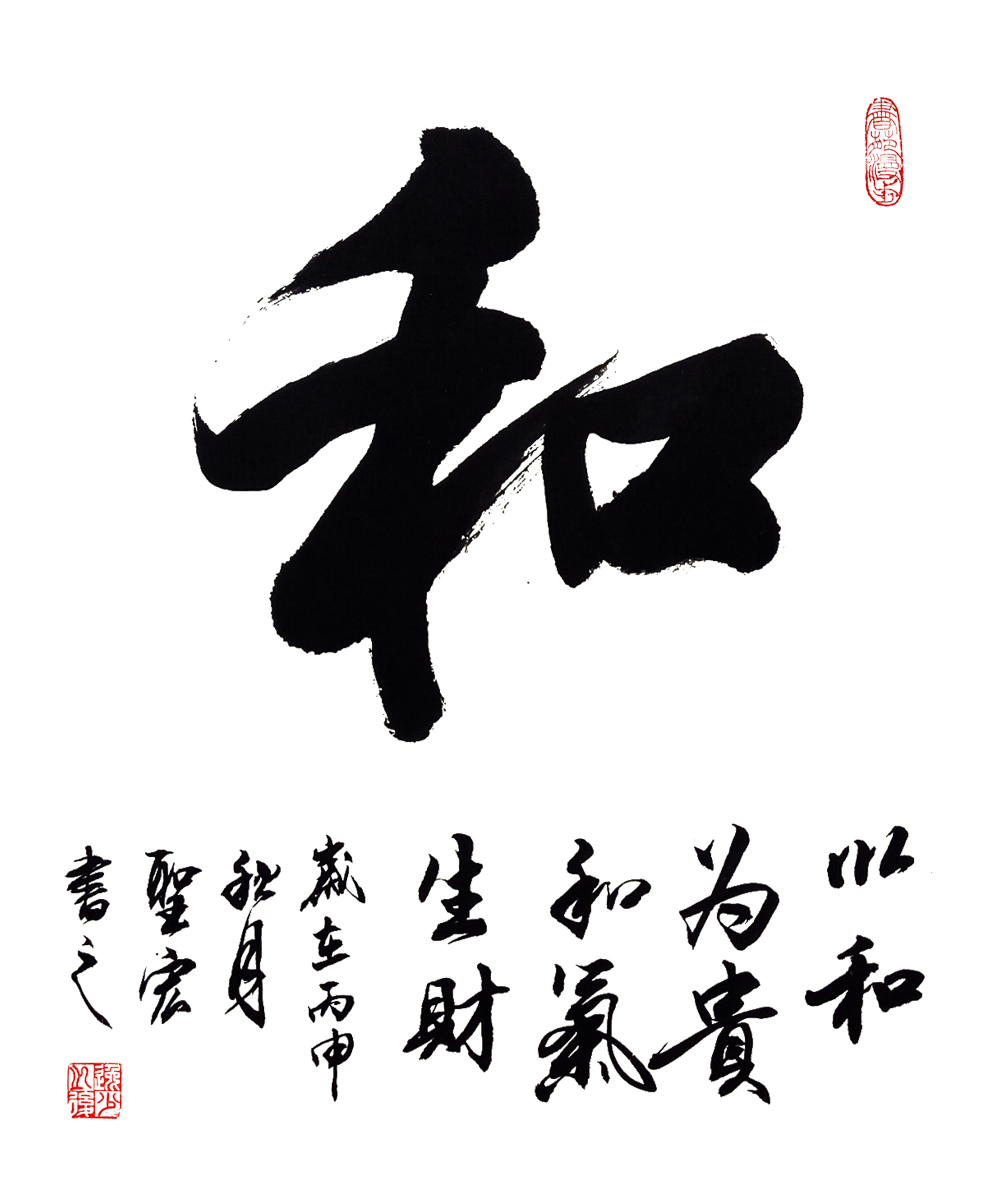 和
以和
为貴
和氣
生財
歲在丙申
秋月
聖宏
書之